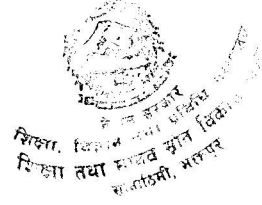 नेपाल सरकार
शिक्षा, विज्ञान तथा प्रविधि
शिक्षा तथा मानव स्रोत
सानोठिमी, भक्तपुर